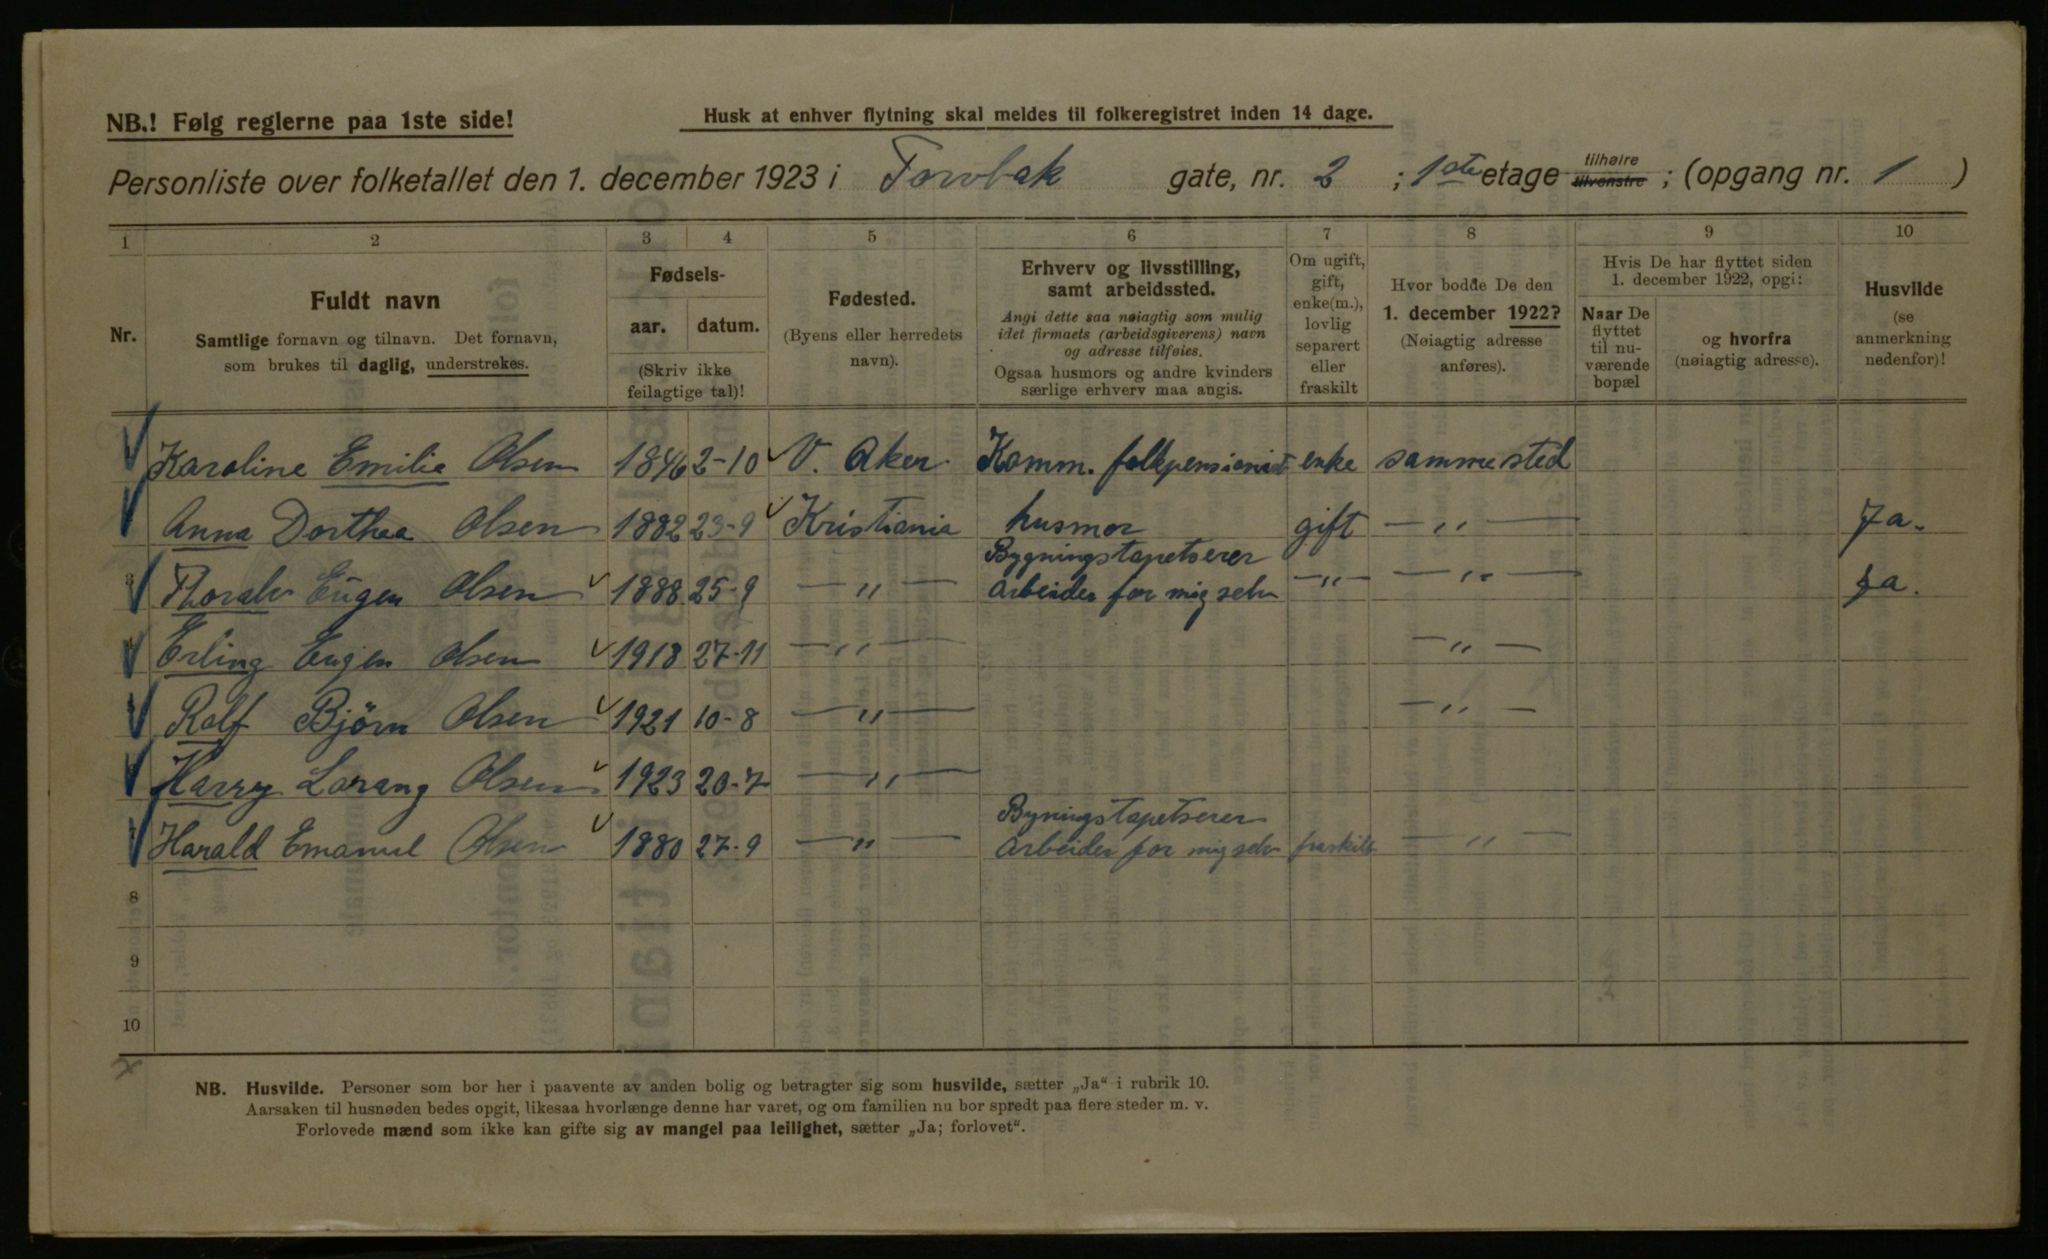 NB.! Følg reglerne paa 1ste side!
Husk at enhver flytning skal meldes til folkeregistret inden 14 dage.
Personliste over folketallet den 1. december 1923 i Torvbak gate, nr. 2 ; 1ste etage tilhøire tilvenstre ; (opgang nr. 1 )
1 2 3 4 5 6 7 8 9 10
Nr.
Fuldt navn
Samtlige fornavn og tilnavn. Det fornavn,
som brukes til daglig, understrekes.
Fødsels-
aar. datum.
(Skriv ikke
feilagtige tal)!
Fødested.
(Byens eller herredets
navn).
Erhverv og livsstilling,
samt arbeidssted.
Angi dette saa nøiagtig som mulig
idet firmaets (arbeidsgiverens) navn
og adresse tilføies.
Ogsaa husmors og andre kvinders
særlige erhverv maa angis.
Om ugift,
gift,
enke(m.),
lovlig
separert
eller
fraskilt
Hvor bodde De den
1. december 1922?
(Nøiagtig adresse
anføres).
Hvis De har flyttet siden
1. december 1922, opgi:
Naar De
flyttet
til nu-
værende
bopæl
og hvorfra
(nøiagtig adresse).
Husvilde
(se
anmerkning
nedenfor)!
Karoline Emilie Olsen 1846 2-10 V. Aker Komm. folkpensionist enke samme sted
Anna Dorthea Olsen 1882 23-9 Kristiania husmor gift — „ — Ja.
Bygningstapetserer
Thoralv Eugen Olsen 1888 25-9 — „ — Arbeider for mig selv — „ — — „ — Ja.
Erling Eugen Olsen 1918 27-11 — „ — — „ —
Rolf Bjørn Olsen 1921 10-8 — „ — — „ —
Harry Lorang Olsen 1923 20-7 — „ —
Bygningstapetserer
Harald Emanuel Olsen 1880 27-9 — „ — Arbeider for mig selv fraskilt — „ —
8
9
10
NB. Husvilde. Personer som bor her i paavente av anden bolig og betragter sig som husvilde, sætter „Ja“ i rubrik 10.
Aarsaken til husnøden bedes opgit, likesaa hvorlænge denne har varet, og om familien nu bor spredt paa flere steder m. v.
Forlovede mænd som ikke kan gifte sig av mangel paa leilighet, sætter „Ja; forlovet“.